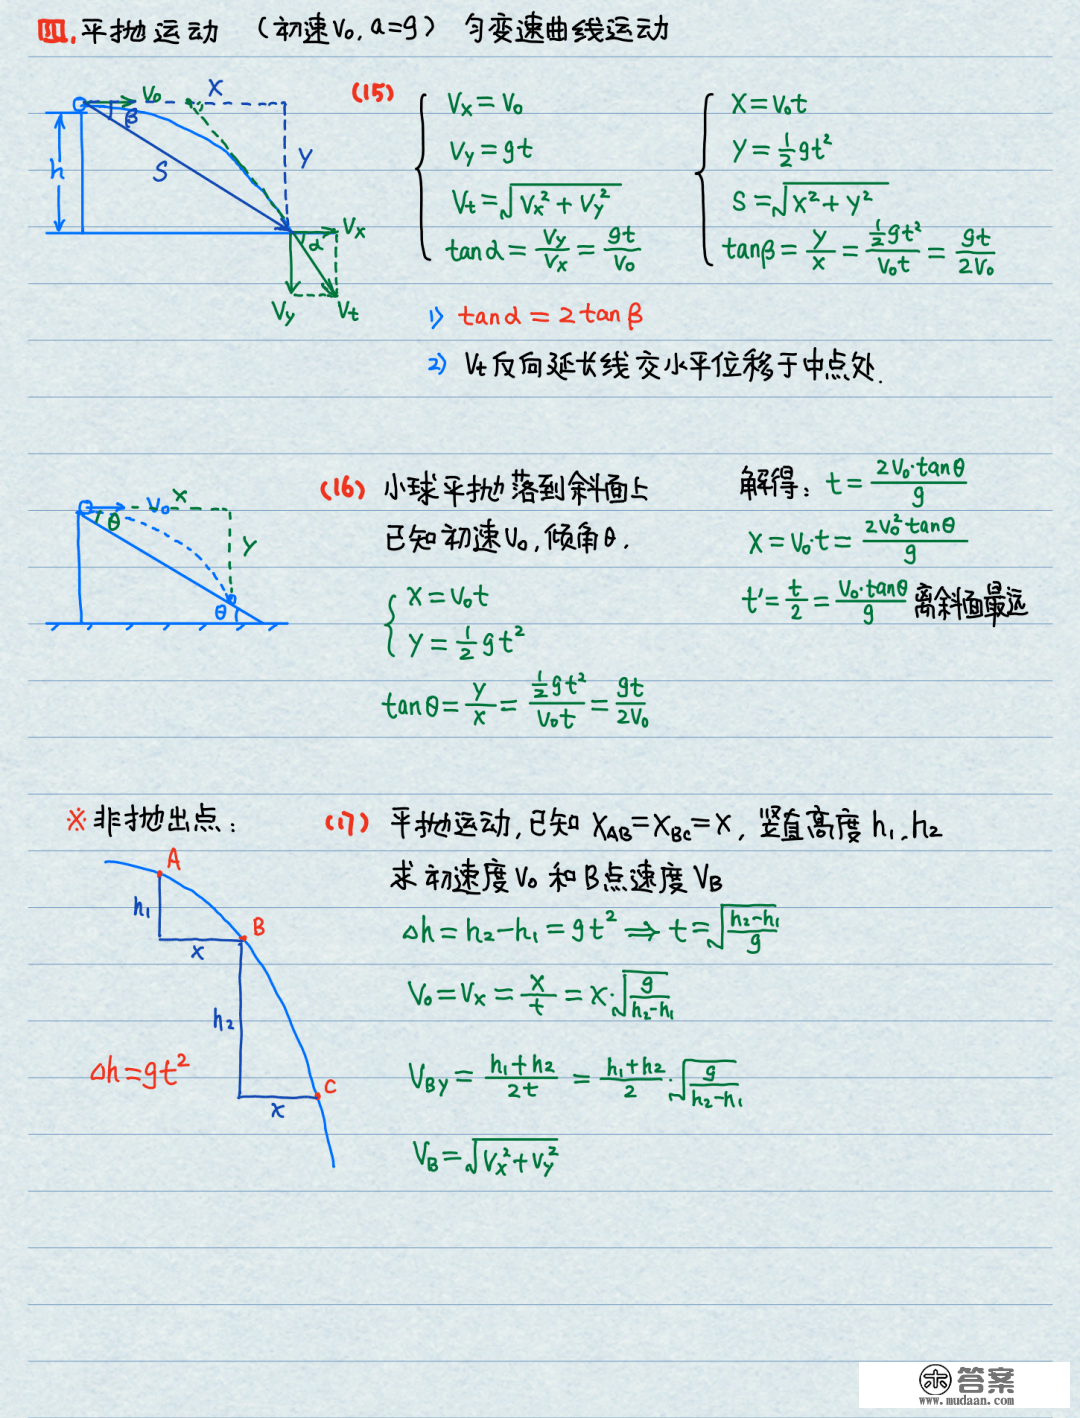 四.平抛运动 (初速V₀, a=g) 匀变速曲线运动
V₀ X β S Y h Vx α Vy Vt
(15)
Vx = V₀
Vy = gt
Vt = √(Vx² + Vy²)
tanα = Vy/Vx = gt/V₀
X = V₀t
Y = ½gt²
S = √(X² + Y²)
tanβ = Y/X = ½gt²/V₀t = gt/2V₀
1) tanα = 2tanβ
2) Vt反向延长线交水平位移于中点处.
V₀ X θ Y θ
(16) 小球平抛落到斜面上
已知初速V₀, 倾角θ.
X = V₀t
Y = ½gt²
tanθ = Y/X = ½gt²/V₀t = gt/2V₀
解得: t = 2V₀·tanθ/g
X = V₀·t = 2V₀²tanθ/g
t' = t/2 = V₀·tanθ/g 离斜面最远
※非抛出点:
A h₁ x B h₂ x C
Δh=gt²
(17) 平抛运动, 已知 X_AB=X_BC=X, 竖直高度 h₁, h₂
求初速度V₀ 和B点速度V_B
Δh = h₂-h₁ = gt² ⇒ t = √((h₂-h₁)/g)
V₀ = Vx = X/t = X·√(g/(h₂-h₁))
V_BY = (h₁+h₂)/2t = (h₁+h₂)/2·√(g/(h₂-h₁))
V_B = √(Vx²+Vy²)
答案
www.mudaan.com